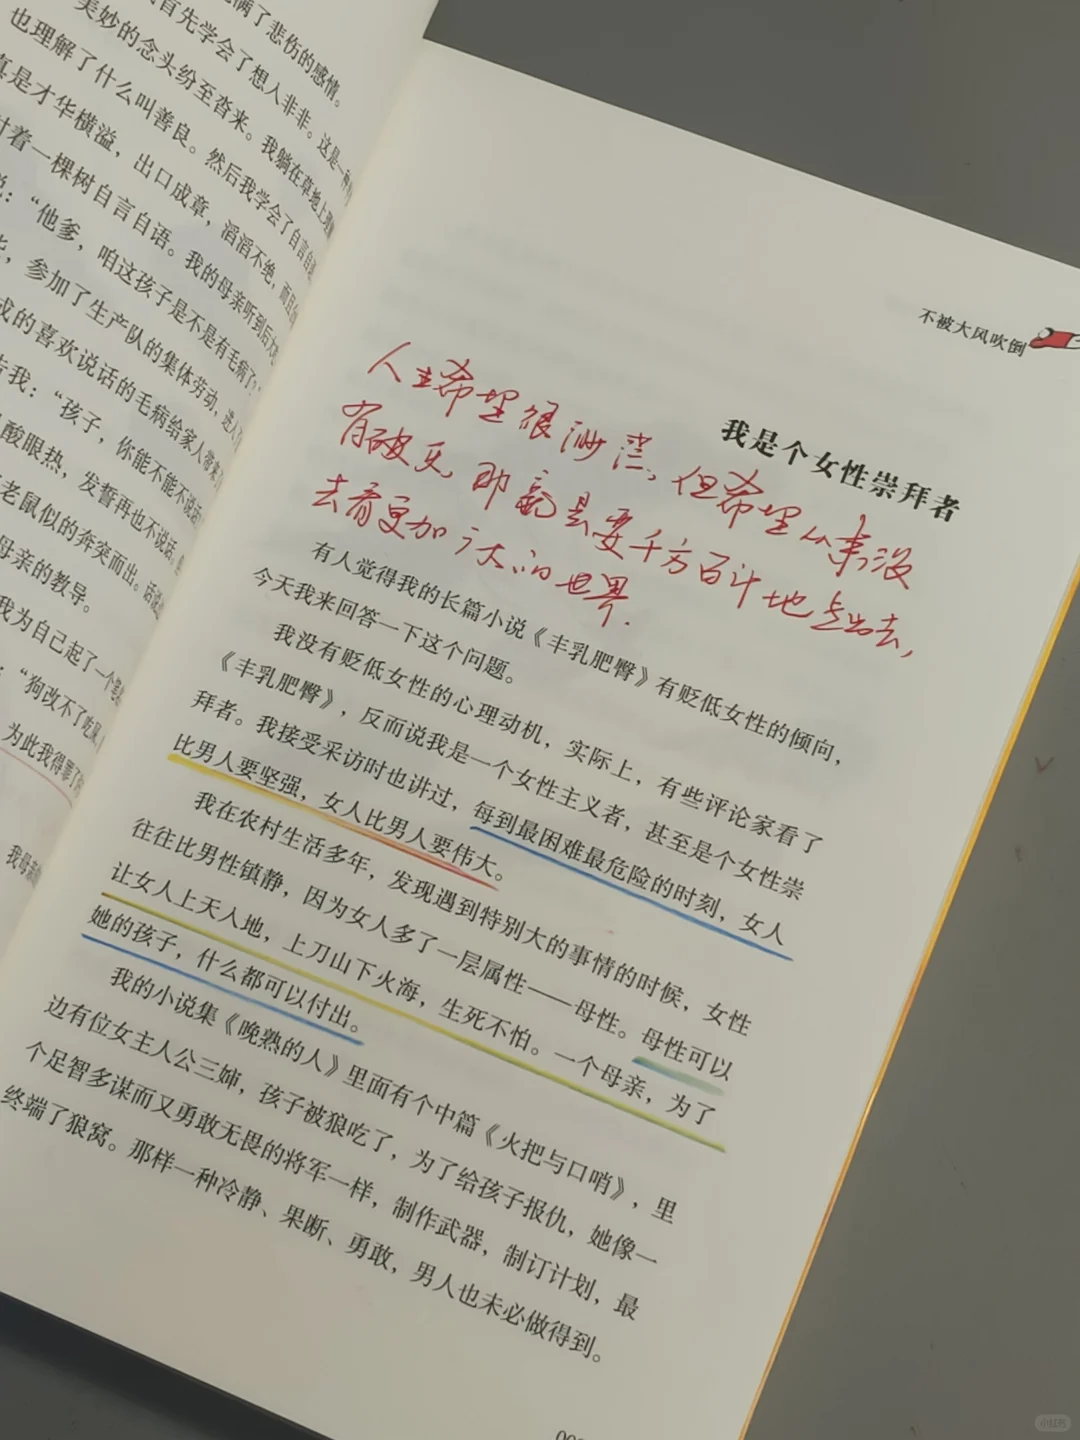 满了悲伤的感情。
首先学会了想入非非。这是一种
美妙的念头纷至沓来。我躺在草地上理解
也理解了什么叫善良。然后我学会了自言自语
真是才华横溢，出口成章，滔滔不绝，而且
对着一棵树自言自语。我的母亲听到后大
说：“他爹，咱这孩子是不是有毛病了？”
参加了生产队的集体劳动，进入
成的喜欢说话的毛病给家人带来
告我：“孩子，你能不能不说话
酸眼热，发誓再也不说话。
老鼠似的奔突而出。话说
母亲的教导。
我为自己起了一个笔
：“狗改不了吃屎，
为此我得罪了
我母亲
不被大风吹倒
我是个女性崇拜者
人生希望很渺茫，但希望从来没
有破灭，那就是要千方百计地走出去，
去看更加广大的世界.
有人觉得我的长篇小说《丰乳肥臀》有贬低女性的倾向，
今天我来回答一下这个问题。
我没有贬低女性的心理动机，实际上，有些评论家看了
《丰乳肥臀》，反而说我是一个女性主义者，甚至是个女性崇
拜者。我接受采访时也讲过，每到最困难最危险的时刻，女人
比男人要坚强，女人比男人要伟大。
我在农村生活多年，发现遇到特别大的事情的时候，女性
往往比男性镇静，因为女人多了一层属性——母性。母性可以
让女人上天入地，上刀山下火海，生死不怕。一个母亲，为了
她的孩子，什么都可以付出。
我的小说集《晚熟的人》里面有个中篇《火把与口哨》，里
边有位女主人公三婶，孩子被狼吃了，为了给孩子报仇，她像一
个足智多谋而又勇敢无畏的将军一样，制作武器，制订计划，最
终端了狼窝。那样一种冷静、果断、勇敢，男人也未必做得到。
小红书